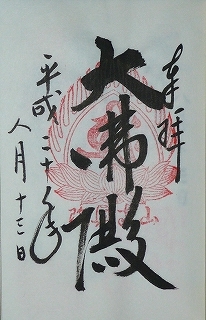 奉拝
大佛殿
平成二十年
八月十三日